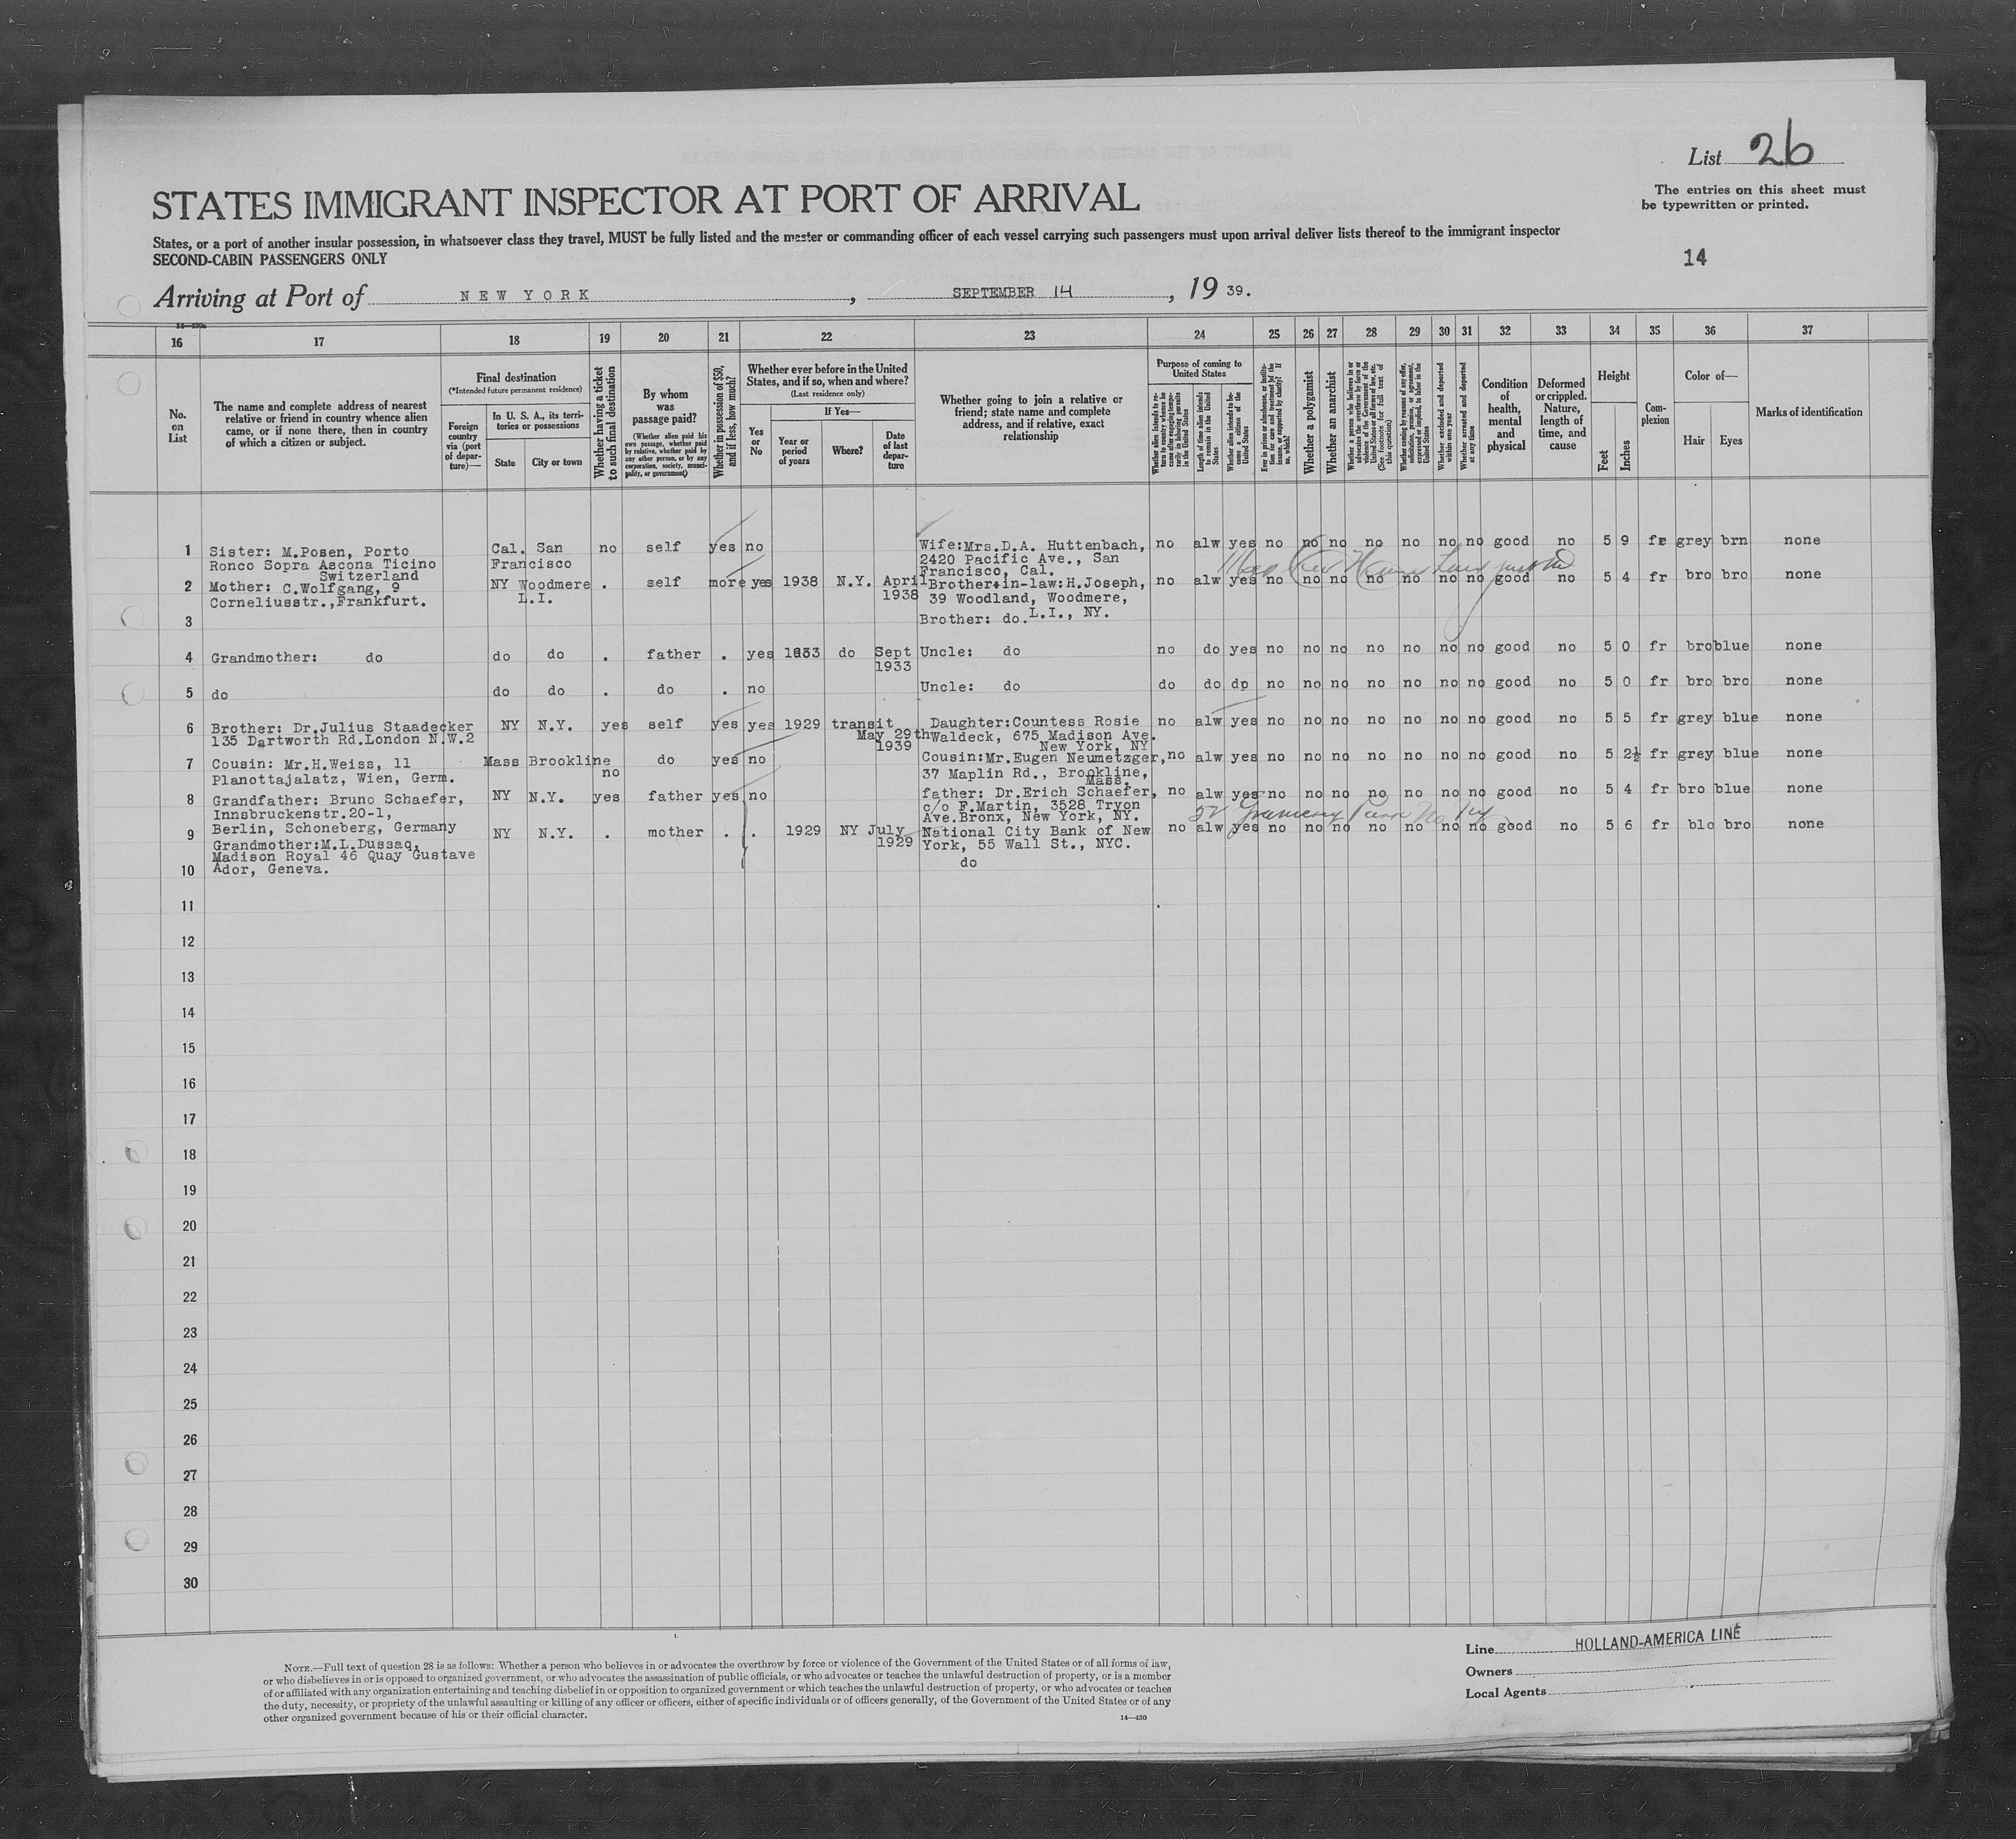 List 26
The entries on this sheet must
be typewritten or printed.
STATES IMMIGRANT INSPECTOR AT PORT OF ARRIVAL
States, or a port of another insular possession, in whatsoever class they travel, MUST be fully listed and the master or commanding officer of each vessel carrying such passengers must upon arrival deliver lists thereof to the immigrant inspector
SECOND-CABIN PASSENGERS ONLY
14
Arriving at Port of NEW YORK, SEPTEMBER 14, 19 39.
16 17 18 19 20 21 22 23 24 25 26 27 28 29 30 31 32 33 34 35 36 37
No. on List
The name and complete address of nearest
relative or friend in country whence alien
came, or if none there, then in country
of which a citizen or subject.
Final destination
(*Intended future permanent residence)
Foreign country via (port of departure)—
In U. S. A., its territories or possessions
State City or town
Whether having a ticket to such final destination
By whom was passage paid?
(Whether alien paid his own passage, whether paid by relative, whether paid by any other person, or by any corporation, society, municipality, or government)
Whether in possession of $50, and if less, how much?
Whether ever before in the United
States, and if so, when and where?
(Last residence only)
Yes or No
If Yes—
Year or period of years Where? Date of last departure
Whether going to join a relative or
friend; state name and complete
address, and if relative, exact
relationship
Purpose of coming to United States
Whether a polygamist
Whether an anarchist
Whether arrested and deported at any time
Condition of health, mental and physical
Deformed or crippled. Nature, length of time, and cause
Height
Feet Inches
Complexion
Color of—
Hair Eyes
Marks of identification
1 Sister: M.Posen, Porto Cal. San no self yes no Wife:Mrs.D.A. Huttenbach, no alw yes no no no no no no no good no 5 9 fr grey brn none
Ronco Sopra Ascona Ticino Francisco 2420 Pacific Ave., San
Switzerland Francisco, Cal.
2 Mother: C.Wolfgang, 9 NY Woodmere . self more yes 1938 N.Y. April Brother-in-law:H.Joseph, no alw yes no no no no no no no good no 5 4 fr bro bro none
Corneliusstr.,Frankfurt. L.I. 1938 39 Woodland, Woodmere,
3 Brother: do. L.I., NY.
4 Grandmother: do do do . father . yes 1933 do Sept Uncle: do no do yes no no no no no no no good no 5 0 fr bro blue none
1933
5 do do do . do . no Uncle: do do do dp no no no no no no no good no 5 0 fr bro bro none
6 Brother: Dr.Julius Staadecker NY N.Y. yes self yes yes 1929 transit Daughter:Countess Rosie no alw yes no no no no no no no good no 5 5 fr grey blue none
135 Dartworth Rd.London N.W.2 May 29th Waldeck, 675 Madison Ave.
1939 New York, NY
7 Cousin: Mr.H.Weiss, 11 Mass Brookline do yes no Cousin:Mr.Eugen Neumetzger, no alw yes no no no no no no no good no 5 2½ fr grey blue none
Planottajalatz, Wien, Germ. no 37 Maplin Rd., Brookline,
Mass.
8 Grandfather: Bruno Schaefer, NY N.Y. yes father yes no father: Dr.Erich Schaefer, no alw yes no no no no no no no good no 5 4 fr bro blue none
Innsbruckenstr.20-1, c/o F.Martin, 3528 Tryon
Berlin, Schoneberg, Germany Ave.Bronx, New York, NY.
52 Gramercy Park No NY
9 NY N.Y. . mother . . 1929 NY July National City Bank of New no alw yes no no no no no no no good no 5 6 fr blo bro none
Grandmother:M.L.Dussaq, 1929 York, 55 Wall St., NYC.
Madison Royal 46 Quay Gustave
10 Ador, Geneva. do
11
12
13
14
15
16
17
18
19
20
21
22
23
24
25
26
27
28
29
30
NOTE.—Full text of question 28 is as follows: Whether a person who believes in or advocates the overthrow by force or violence of the Government of the United States or of all forms of law,
or who disbelieves in or is opposed to organized government, or who advocates the assassination of public officials, or who advocates or teaches the unlawful destruction of property, or is a member
of or affiliated with any organization entertaining and teaching disbelief in or opposition to organized government or which teaches the unlawful destruction of property, or who advocates or teaches
the duty, necessity, or propriety of the unlawful assaulting or killing of any officer or officers, either of specific individuals or of officers generally, of the Government of the United States or of any
other organized government because of his or their official character.
14—430
Line HOLLAND-AMERICA LINE
Owners
Local Agents